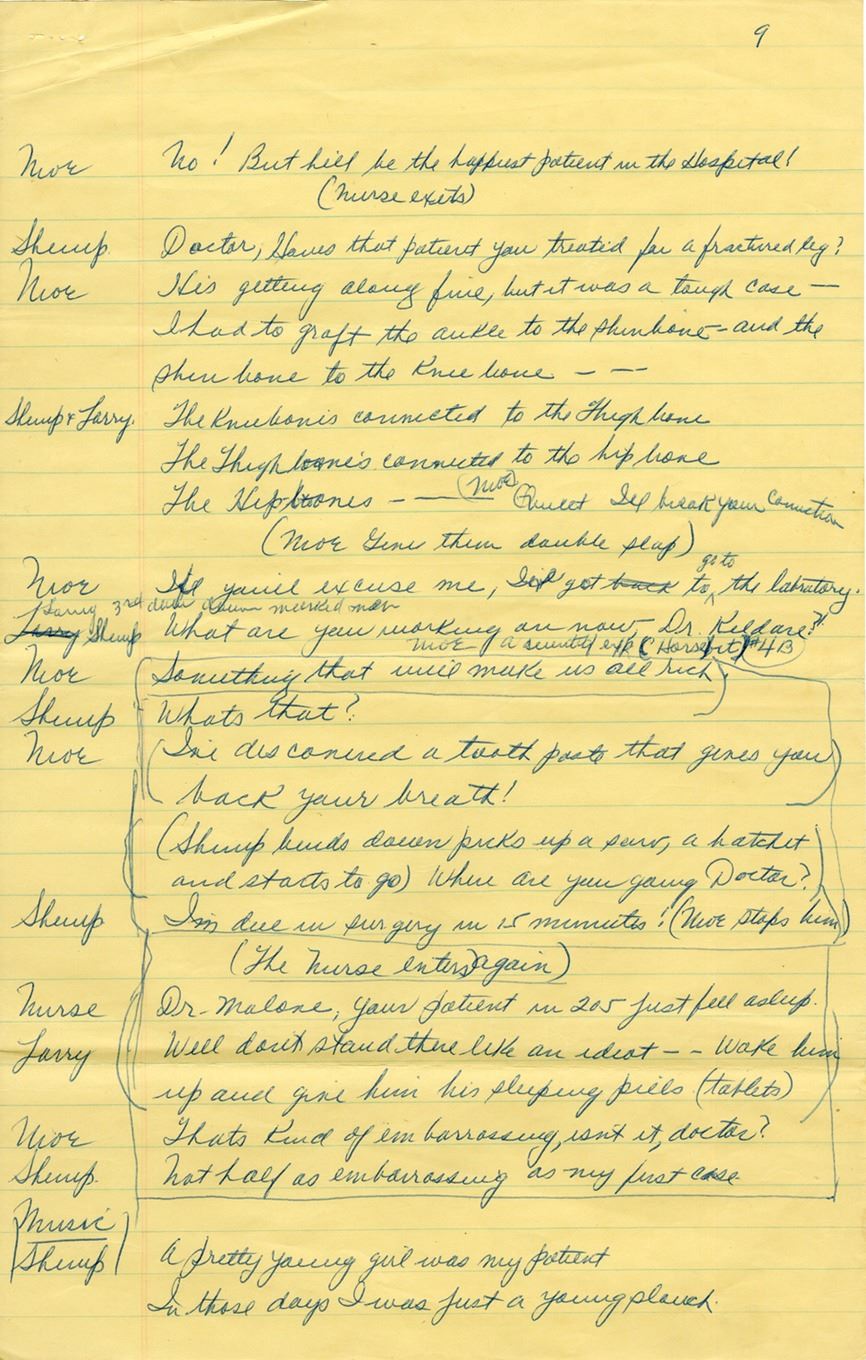 9
Moe No! But he'll be the happiest patient in the Hospital!
(Nurse exits)
Shemp Doctor, Hows that patient you treated for a fractured leg?
Moe His getting along fine, but it was a tough case —
I had to graft the ankle to the shinbone - and the
shin bone to the Knee bone — — —
Shemp & Larry. The Kneebonis connected to the Thigh bone
The Thigh bone's connected to the hip bone
The Hip bones — — (Moe) Quiet I'll break your
(Moe Give them double slap)
Moe If you'll excuse me, I've got back to go to the labratory.
Larry 3rd door down marked men
Larry Shemp What are you working on now, Dr. Kildare?
Moe a exp (Horse bit) #4B
Moe Something that will make us all rich
Shemp Whats that?
Moe (I've discovered a tooth paste that gives you
back your breath!
(Shemp bends down picks up a saw, a hatchet
and starts to go) Where are you going Doctor?
Shemp I'm due in surgery in 15 minnutes! (Moe stops him)
(The Nurse enters again)
Nurse Dr. Malone, your patient in 205 just fell asleep.
Larry Well don't stand there like an idiot — — Wake him
up and give him his sleeping pills (tablets)
Moe Thats Kind of embarrossing, isnt it, doctor?
Shemp. Not half as embarrossing as my first case
Music
Shemp A pretty young girl was my patient
In those days I was just a young